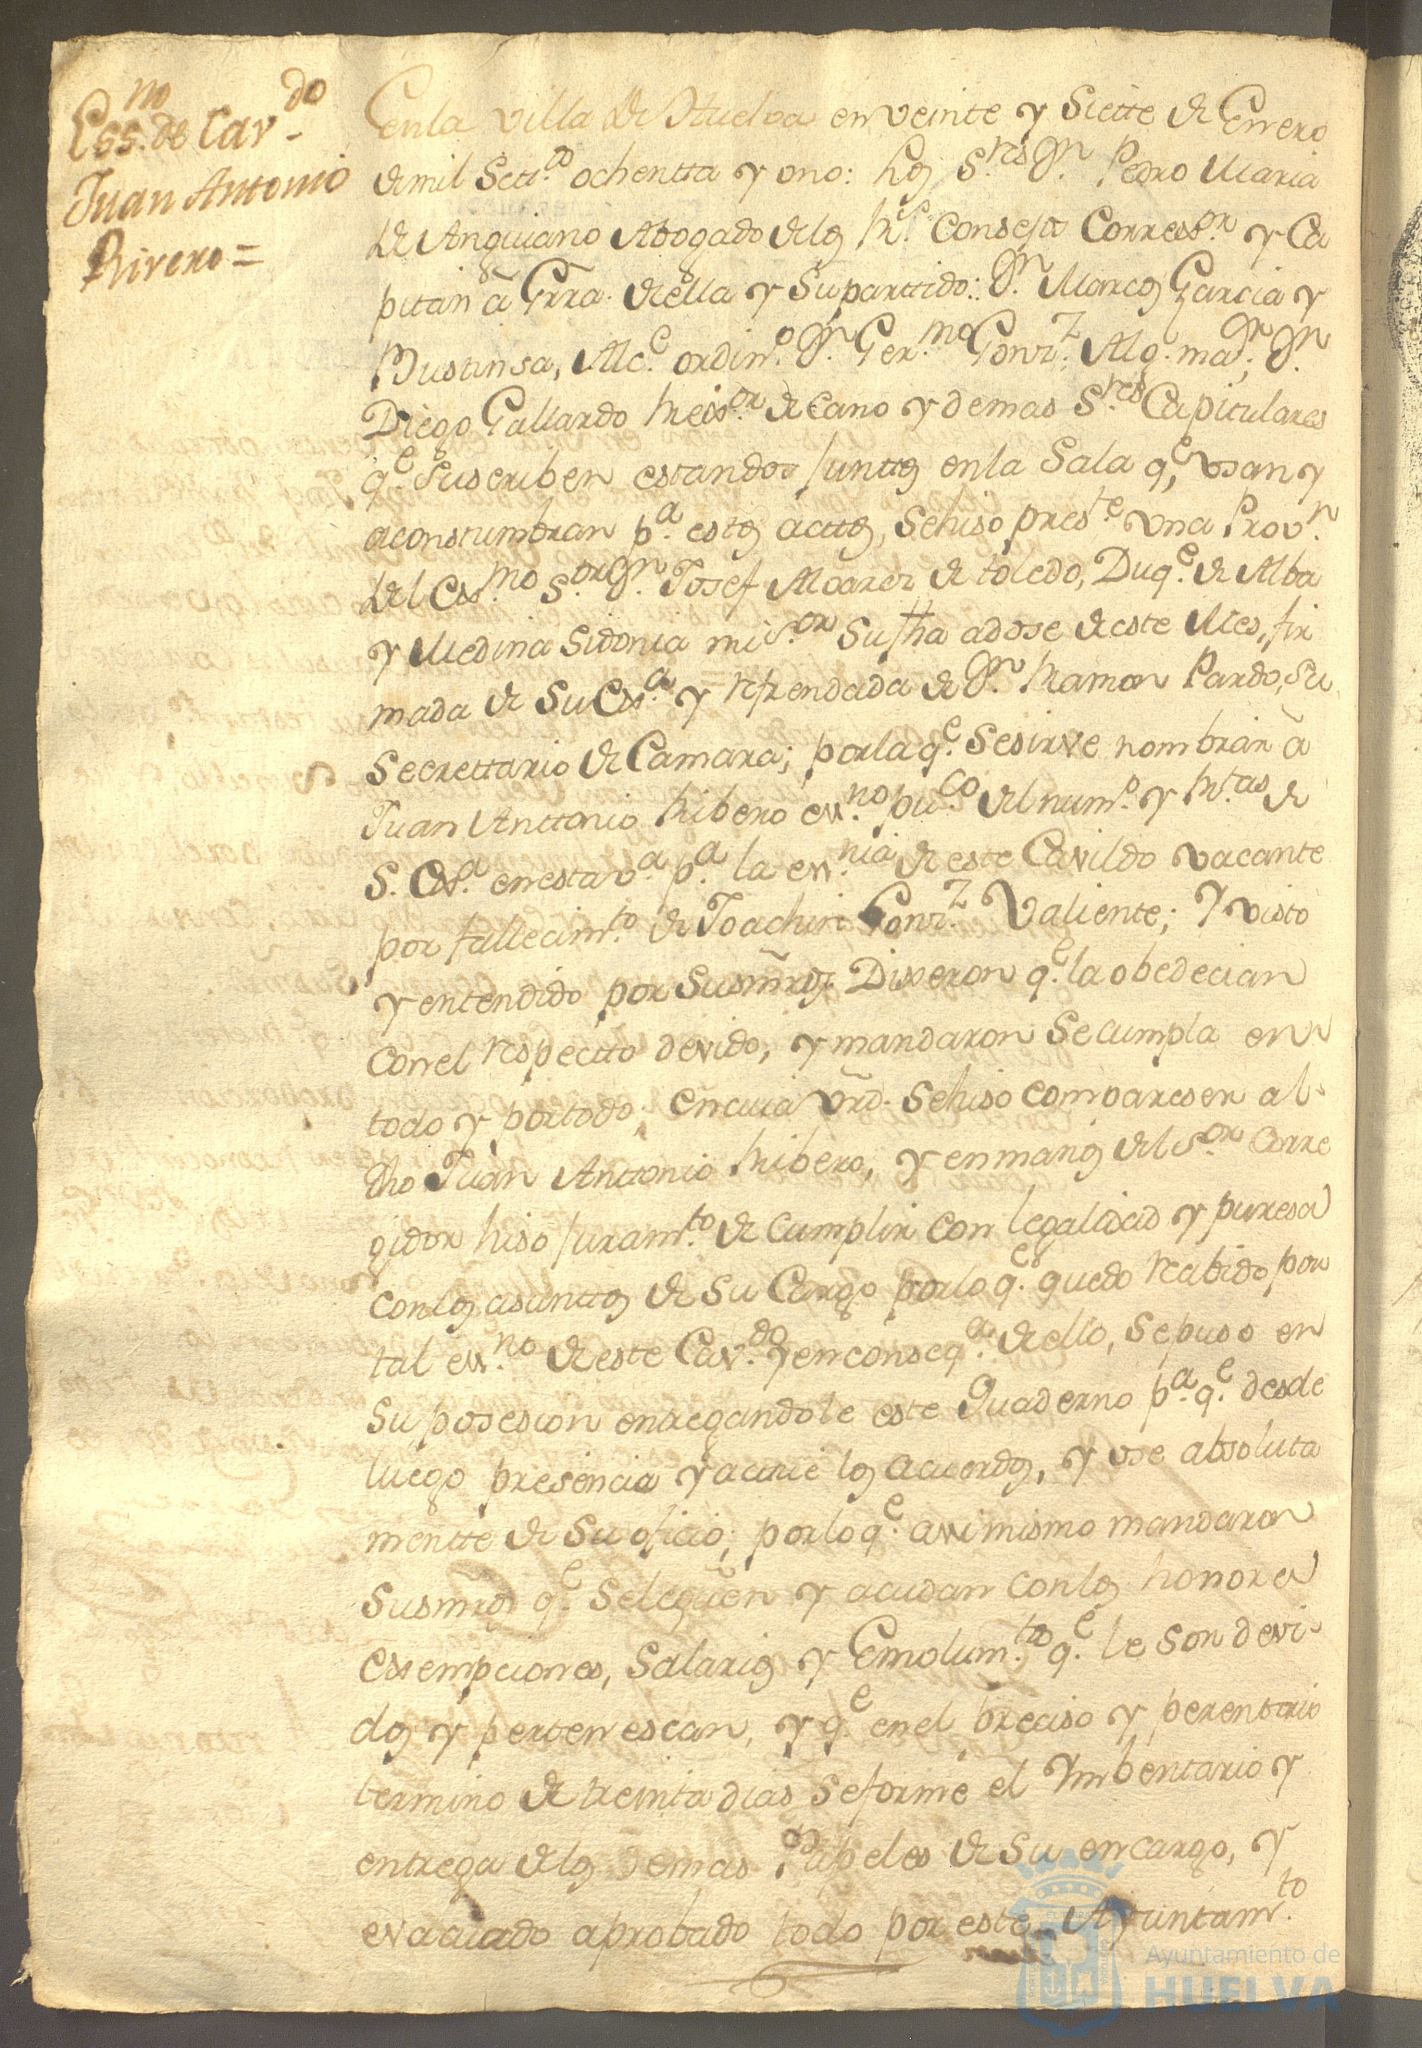 Ess.no de Cav.do
Juan Antonio
Rivero =
En la villa de Huelva en veinte y Siette de Enero
de mil Sett.os ochentta y ono: los S.res Dn. Pedro Maria
de Anguiano Abogado de los R.s Consejos Correg.or y Ca
pitan â Grra. de ella y Supartido: Dn. Marcos Garcia y
Bustinsa, Alc.e ordin.o Dn. Ger.mo Gonz.z Alg. mã.r Dn.
Diego Gallardo Reg.or decano y demas S.res Capitulares
q.e Suscriben estandos juntos enla Sala q.e usan y
aconstumbran p.a estos acttos, Sehiso pres.te una Prov.n
del Ex.mo S.or Dn. Josef Alvarez de toledo, Duq.e de Alba
y Medina Sidonia mi S.or Su fha adose de este Mes, fir
mada de Su Ex.a y refrendada de Dn. Ramon Pardo, Su
Secrettario de Camara; porla q.e Sesirve nombrar â
Juan Anttonio Ribero ess.no pu.co del num.o y R.tas de
S. Ex.a en esta v.a p.a la ess.nia de este Cavildo vacante
por fallecim.to de Joachin Gonz.z Valiente; Y visto
y entendido por Susmrds. Dixeron q.e la obedecian
Conel respectto devido, y mandaron Secumpla en
todo y portodo; en cuia vrd. Sehiso comparesen al
dho Juan Anttonio Ribero, y en manos del S.or Corre
gidor hiso juram.to de Cumplir con legalidad y puresa
conlos asunttos de Su Cargo porlo q.e quedo recibido por
tal ess.no de este Cav.do y en conseq.a de ello, sepuso en
Su posesion entregandole este Quaderno p.a q.e desde
luego presencia y actue los acuerdos, y use absoluta
mentte de Su oficio; porlo q.e assimismo mandaron
Susmrds q.e Seleguen y acudan conlos honores
essempciones, Salarios y Emolum.tos q.e le son devi
dos y pertenescan, y q.e enel preciso y perentorio
termino de treinta dias Seforme el Ymbentario y
entrega delos demas Papeles de Su encargo, y
evacuado aprobado todo por este Ayuntam.to
Ayuntamiento de
HUELVA